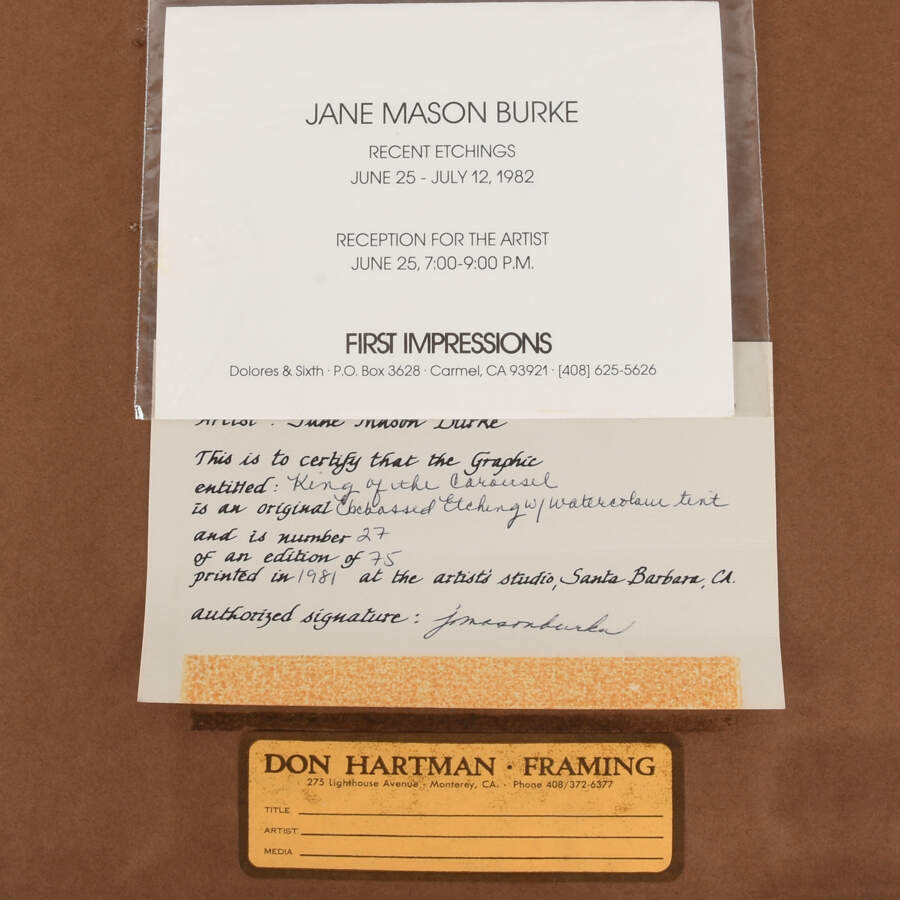 JANE MASON BURKE
RECENT ETCHINGS
JUNE 25 - JULY 12, 1982
RECEPTION FOR THE ARTIST
JUNE 25, 7:00-9:00 P.M.
FIRST IMPRESSIONS
Dolores & Sixth · P.O. Box 3628 · Carmel, CA 93921 · [408] 625-5626
Artist : Jane Mason Burke
This is to certify that the Graphic
entitled : King of the Carousel
is an original Embossed Etching w/ watercolour tint
and is number 27
of an edition of 75
printed in 1981 at the artist's studio, Santa Barbara, CA.
authorized signature : jomasonburke
DON HARTMAN · FRAMING
275 Lighthouse Avenue - Monterey, CA. - Phone 408/372-6377
TITLE
ARTIST
MEDIA